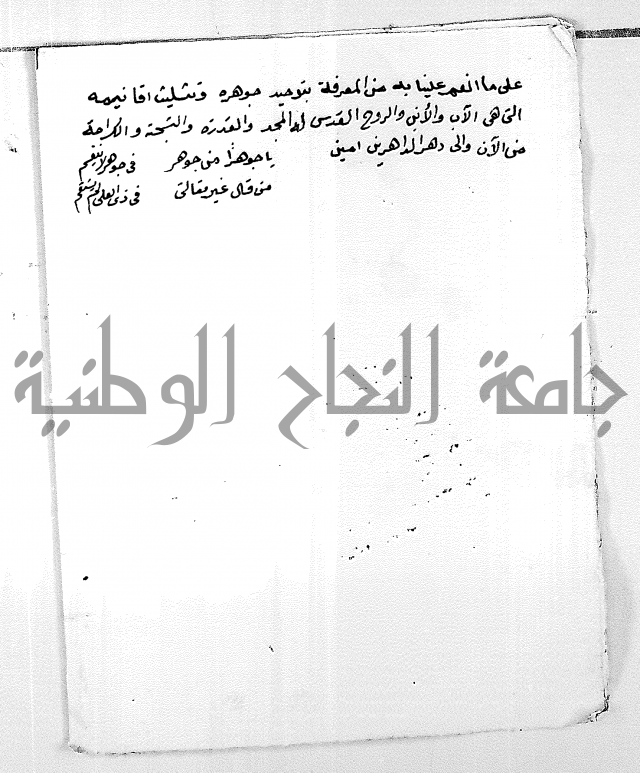 على ما انعم علينا به من المعرفة بتوحيد جوهره وتثليث اقانيمه
التي هي الآب والأبن والروح القدس له المجد والقدرة والسجدة والكرامة
من الآن والى دهر الداهرين امين يا جوهرا من جوهر في جوهر
من قال غير مقالتي في ذي العلى
جامعة النجاح الوطنية